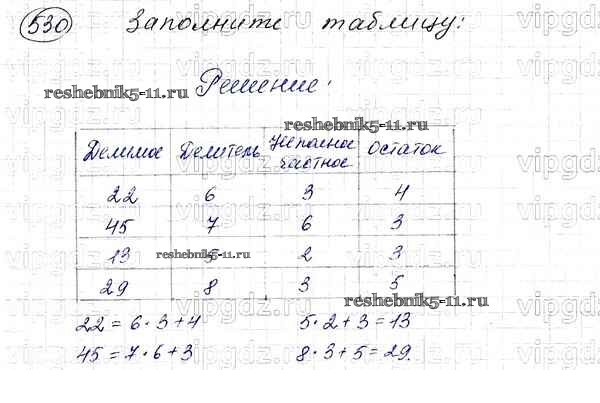 530 Заполните таблицу:
Решение:
reshebnik5-11.ru
reshebnik5-11.ru
Делимое Делитель Неполное частное Остаток
22 6 3 4
45 7 6 3
13 5 2 3
reshebnik5-11.ru
29 8 3 5
reshebnik5-11.ru
22 = 6 · 3 + 4 5 · 2 + 3 = 13
45 = 7 · 6 + 3 8 · 3 + 5 = 29.
vipgdz.ru